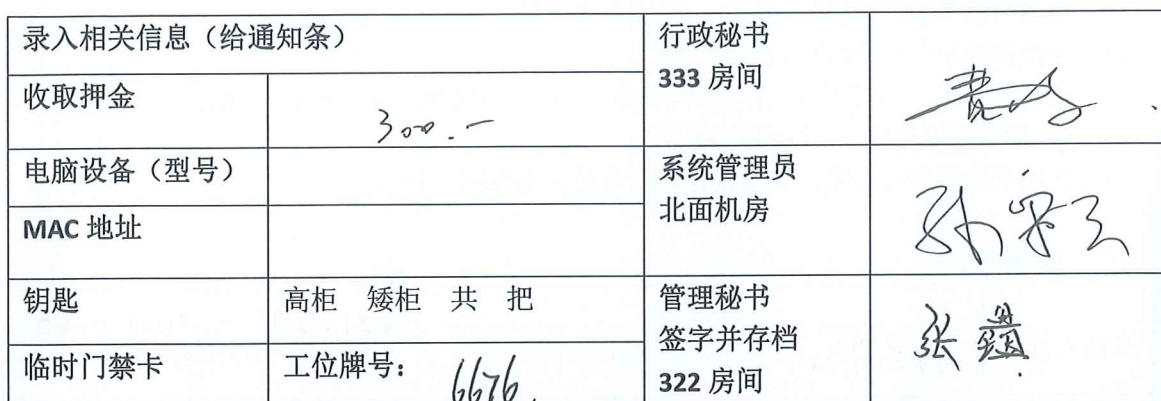 录入相关信息（给通知条）
行政秘书
333 房间
收取押金
300.-
电脑设备（型号）
系统管理员
北面机房
MAC 地址
钥匙
高柜 矮柜 共 把
管理秘书
签字并存档
322 房间
张
临时门禁卡
工位牌号：
6676.